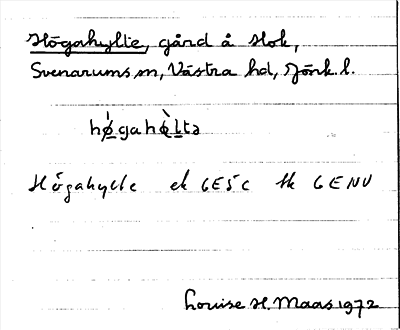 Högahylte, gård å Hok,
Svenarums sn, Västra hd, Jönk. l.
høgahølta
Högahylte ek 6E5C tk 6ENV
Louise H. Maas 1972